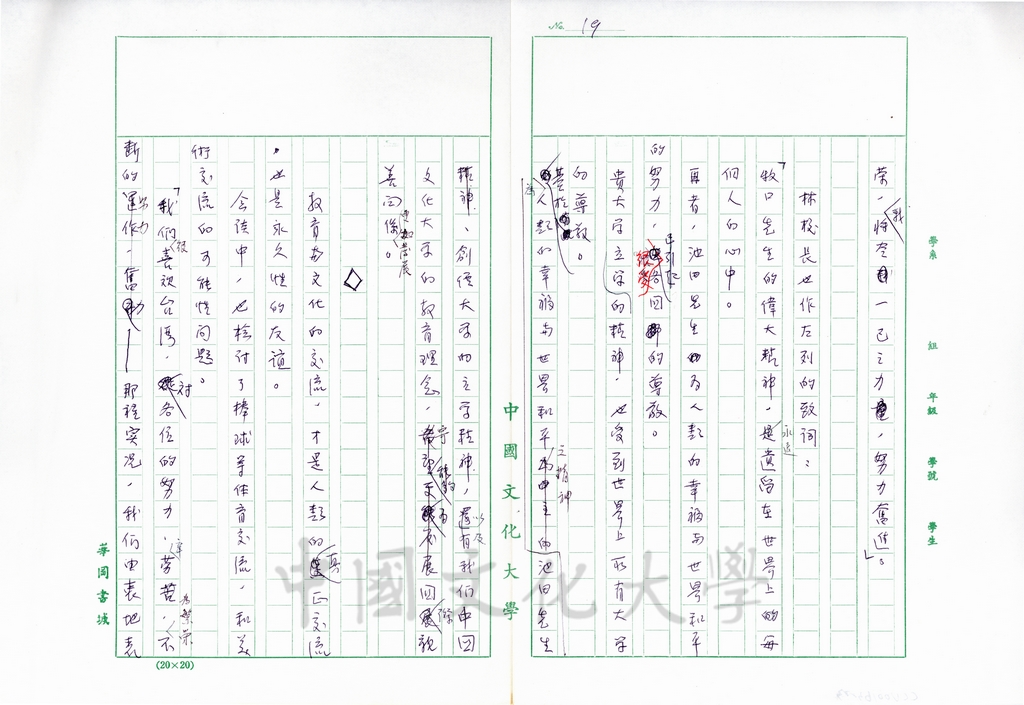 No. 19
榮,我將尽一己之力量,努力奮進。」
林校長也作左列的致詞:
「牧口先生的偉大精神,是永遠遺留在世界上的每
個人的心中。
再者,池田先生為人類的幸福与世界和平
的努力,已引起很多回的尊敬。
貴大学立学的精神,也受到世界上所有大学
的尊敬。
基於為人類的幸福与世界和平之精神 池田先生
精神、創價大学的立学精神,以及還有我们中国
文化大学的教育理念,
善回像。
教育与文化的交流,才是人類的真正交流
,也是永久性的友誼。
会談中,也檢討了棒球等体育交流,和美
術交流的可能性问題。
「我們很喜欢台湾,对各位的努力、辛勞苦,為繁榮不
断的努力運作,奮鬥——那種实况,我们由衷地表
學系 組 年級 學號 學生
中國文化大學
華岡書城
(20×20)
中國文化大學